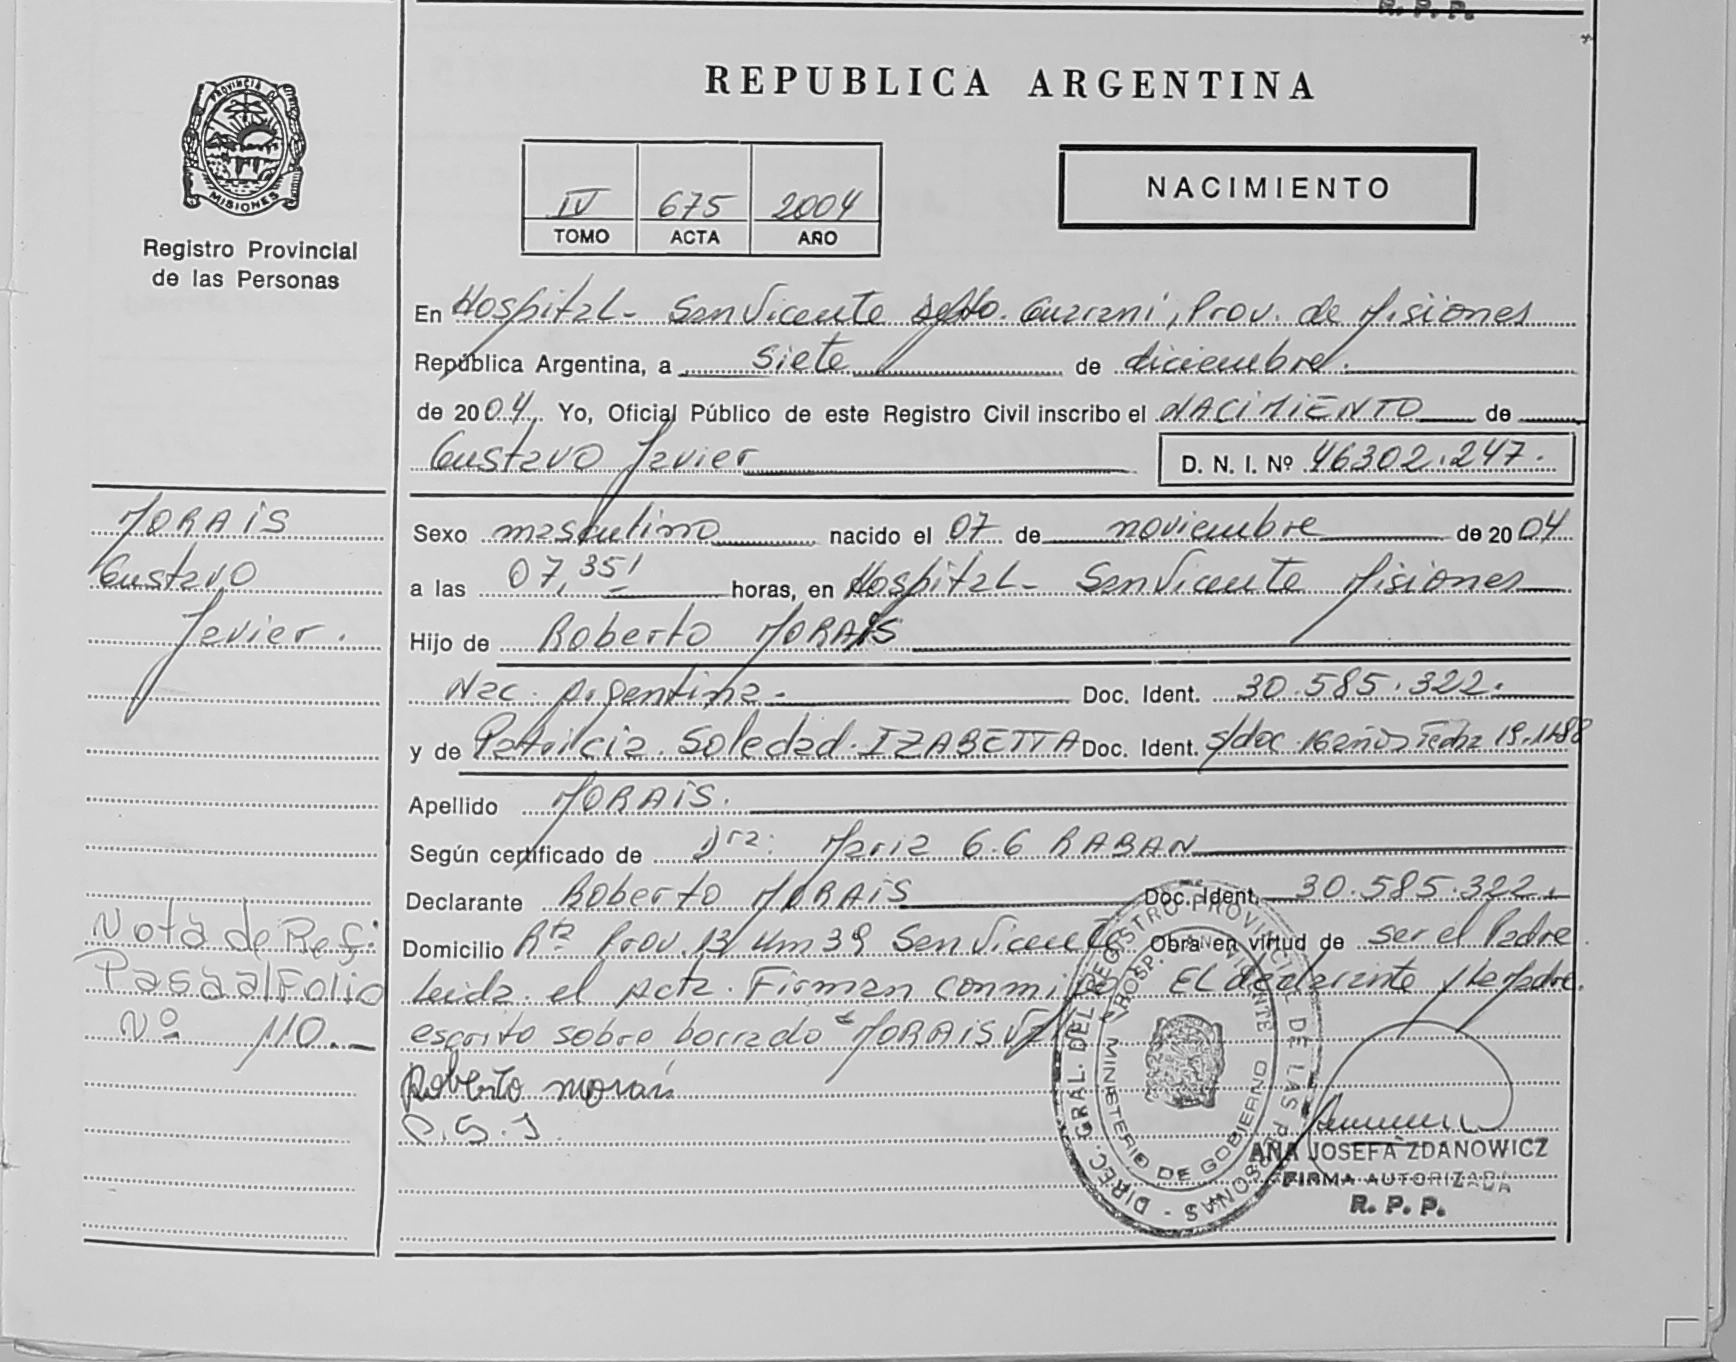 R. P. P.
PROVINCIA DE
MISIONES
Registro Provincial
de las Personas
REPUBLICA ARGENTINA
IV 675 2004
TOMO ACTA AÑO
NACIMIENTO
En Hospital - San Vicente Dpto. Guarani, Prov. de Misiones
República Argentina, a siete de diciembre.
de 2004. Yo, Oficial Público de este Registro Civil inscribo el NACIMIENTO de
Gustavo Javier D. N. I. Nº 46302.247.
MORAIS
Gustavo
Javier.
Sexo masculino nacido el 07 de noviembre de 2004
a las 07,35' horas, en Hospital - San Vicente Misiones
Hijo de Roberto MORAIS
Nac. Argentina. Doc. Ident. 30.585.322.
y de Patricia Soledad IZABETTA Doc. Ident. s/doc 16 años Fecha 19.11.88
Apellido MORAIS.
Según certificado de Dra: Maria G.G RABAN
Declarante Roberto MORAIS Doc. Ident. 30.585.322.
Domicilio Rta Prov. 13 Km 39 San Vicente Obra en virtud de ser el Padre
Leida el Acta. Firman conmigo El declarante y la Madre.
escrito sobre borrado "MORAIS
Nota de Ref:
Pasa al Folio
Nº 110.-
Roberto morais
P.S.I.
DIREC. GRAL. DEL REGISTRO PROVINCIAL DE LAS PERSONAS
MINISTERIO DE GOBIERNO
HOSP. SAN VICENTE
ANA JOSEFA ZDANOWICZ
FIRMA AUTORIZADA
R. P. P.